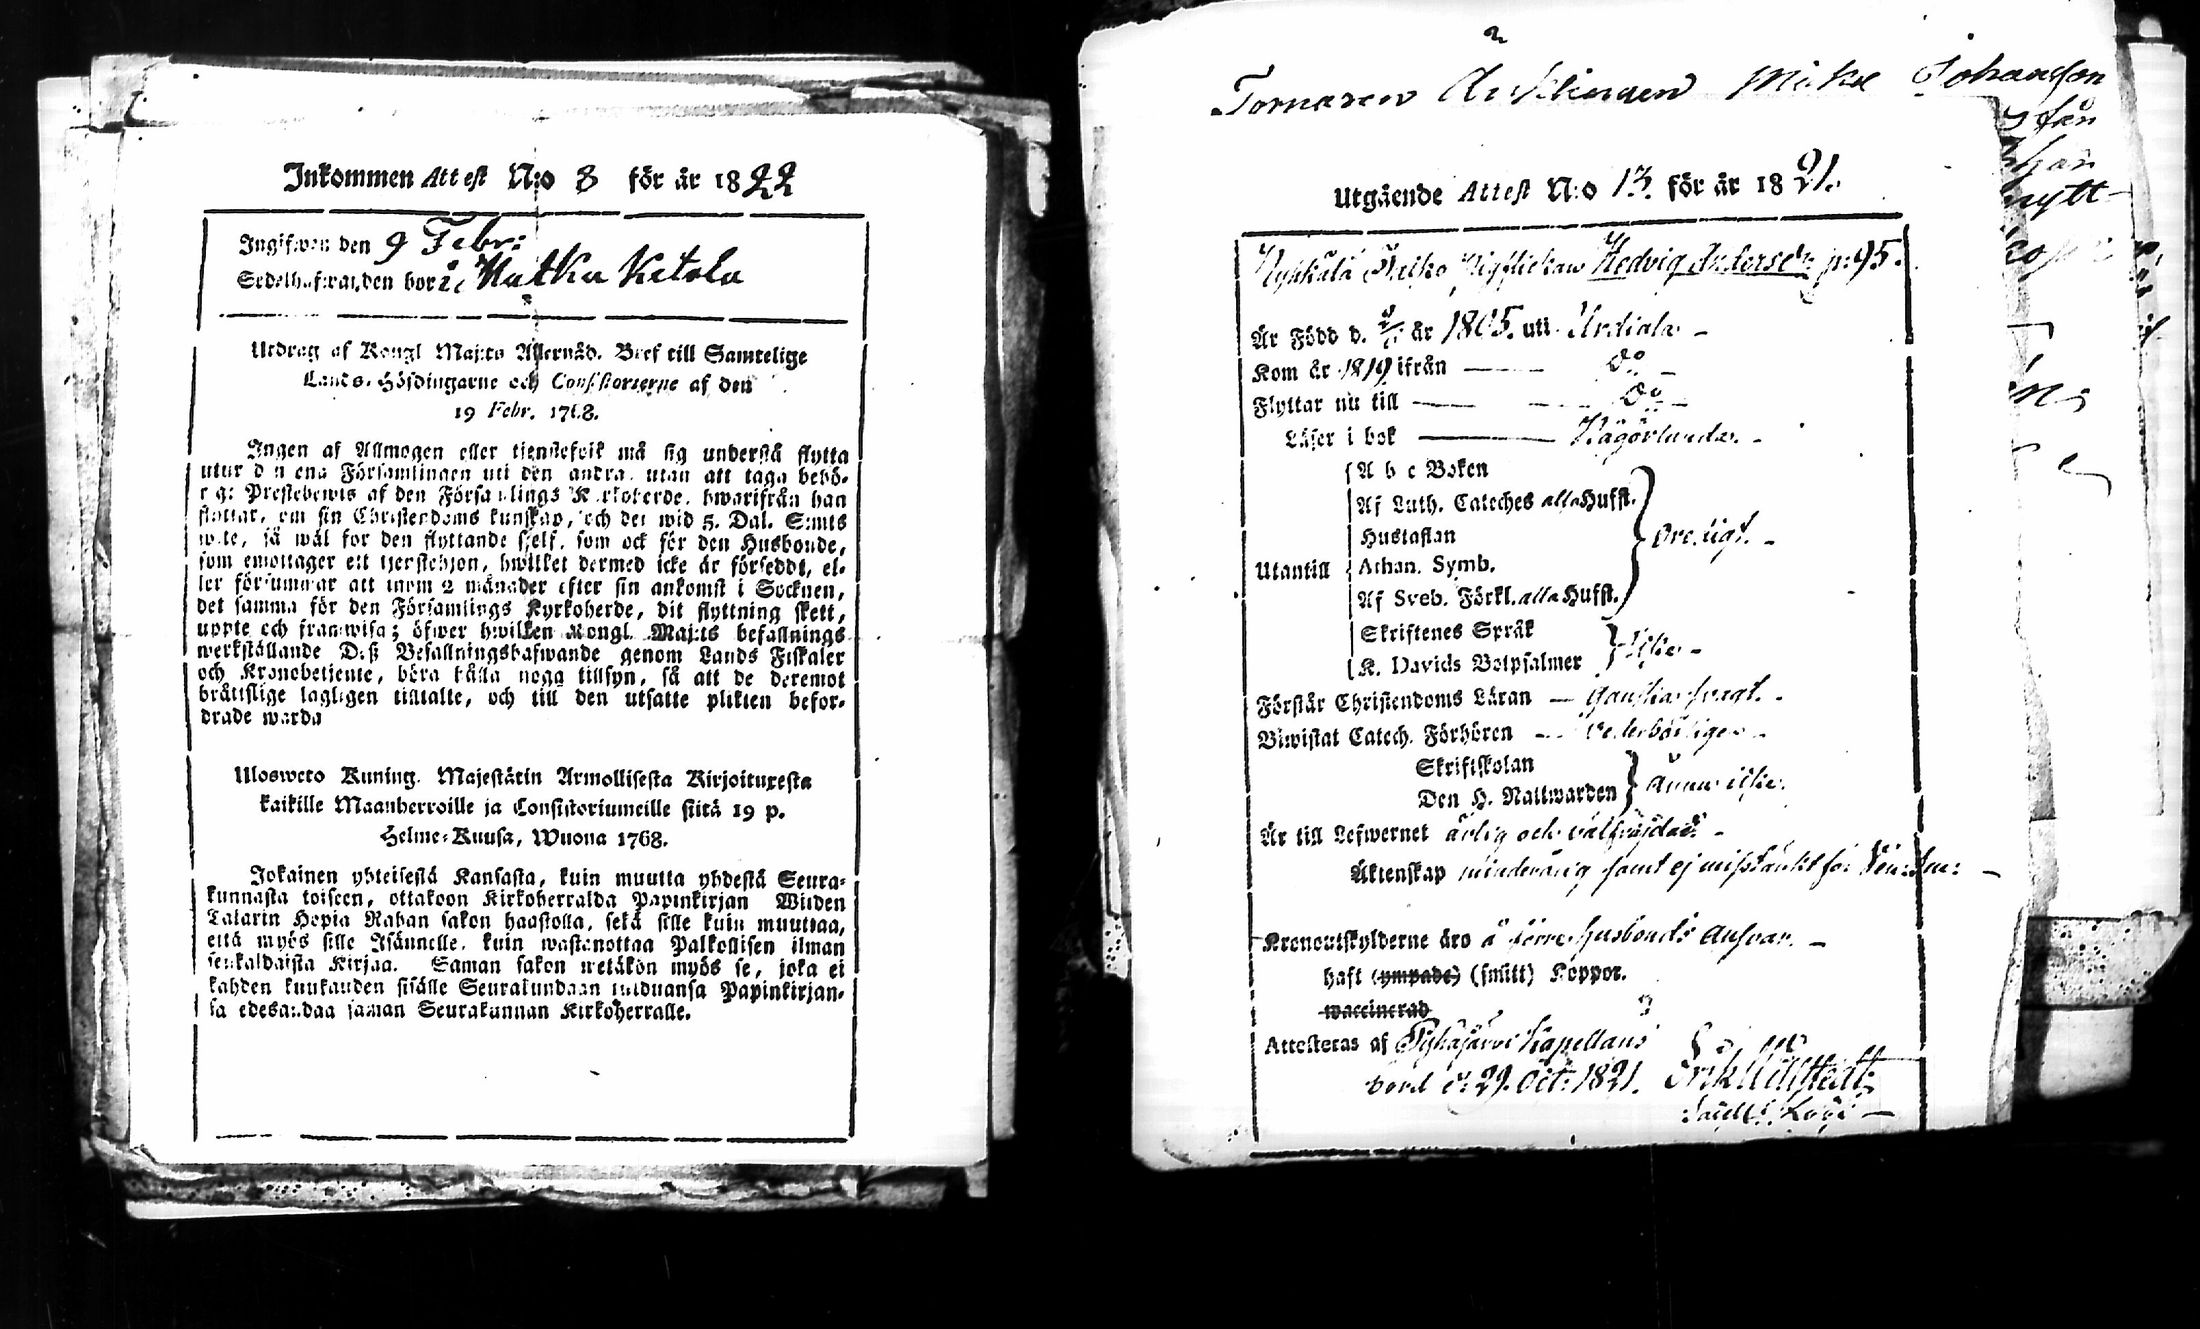 Inkommen Attest N:o 8 för år 1822
Ingifwen den 9 Febr:
Sedelhafwanden bor i Hutku Ketola
Utdrag af Kongl Maj:ts Allernåd. Bref till Samtelige
Lands-Höfdingarne och Consistorierne af den
19 Febr. 1768.
Ingen af Allmogen eller tjenstefolk må sig understå flytta
utur den ena Församlingen uti den andra, utan att taga behö-
rigt Prestebewis af den Församlings Kyrkoherde, hwarifrån han
flyttar, om sin Christendoms kunskap, och det wid 5. Dal. S:mts
wite, så wäl för den flyttande sjelf, som ock för den Husbonde,
som emottager ett tjenstehjon, hwilket dermed icke är försedt, el-
ler försummar att inom 2 månader efter sin ankomst i Socknen,
det samma för den Församlings Kyrkoherde, dit flyttning skett,
uppte och framwisa; öfwer hwilken Kongl. Maj:ts befallnings
werkställande Deß Befallningshafwande genom Lands Fiskaler
och Kronobetjente, böra hålla noga tillsyn, så att de deremot
bråttslige lagligen tilltalte, och till den utsatte plikten befor-
drade warda
Ulosweto Kuning. Majestätin Armollisesta Kirjoituxesta
kaikille Maanherroille ja Consistoriumeille siitä 19 p.
Helme-Kuusa, Wuona 1768.
Jokainen yhteisestä Kansasta, kuin muutta yhdestä Seura-
kunnasta toiseen, ottakoon Kirkoherralda Papinkirjan Wiiden
Talarin Hopia Rahan sakon haastolla, sekä sille kuin muuttaa,
että myös sille Isännelle, kuin wastanottaa Palkollisen ilman
senkaldaista Kirjaa. Saman sakon wetäkön myös se, joka ei
kahden kuukauden sisälle Seurakundaan tulduansa Papinkirjan-
sa edesandaa saman Seurakunnan Kirkoherralle.
Mickel Johansson
Utgående Attest N:o 13. för år 1821.
Hedvig Andersdr p: 95.
Är Född d. år 1805. uti Urdiala
Kom år 1819 ifrån — do —
Flyttar nu till — — do —
Läser i bok —
A b c Boken
Af Luth. Cateches alla Hufst.
Hustaflan
Utantill Athan. Symb.
Af Sveb. Förkl. alla Hufst.
Skriftenes Språk
K. Davids Botpsalmer
Förstår Christendoms Läran — ganska svagt.
Biwistat Catech. Förhören — vederbörligen
Skriftskolan
Den H. Nattwarden ännu icke.
Är till Lefwernet ärlig och välfrejdad. —
Äktenskap minderårig samt ej misstänkt för
Kronoutskylderne äro å förre husbonds ansvar. —
haft (ympade) (smitt) Koppor.
waccinerad
Attesteras af Kapellans
bord d. 29. Oct: 1821. Erik